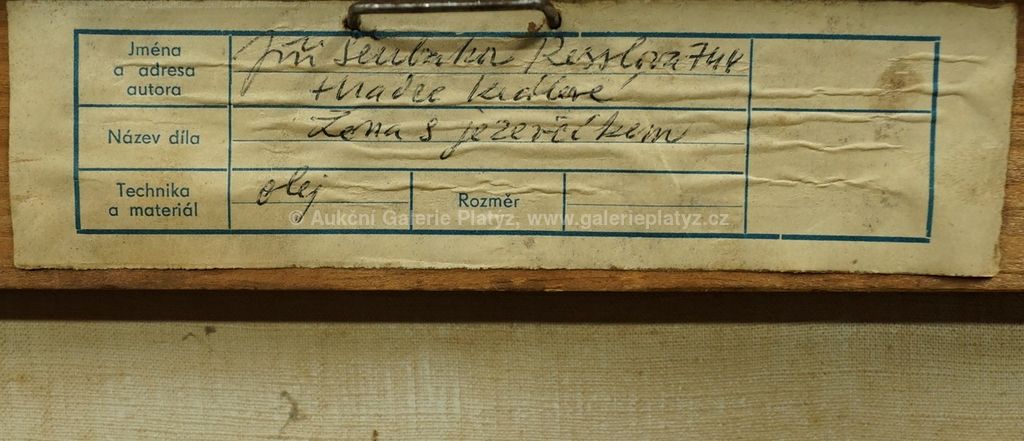 Jména
a adresa
autora
Jiří Kesslova 744
Hradec Králové
Název díla
Žena s jezevčíkem
Technika
a materiál
olej
Rozměr
© Aukční Galerie Platýz, www.galerieplatyz.cz